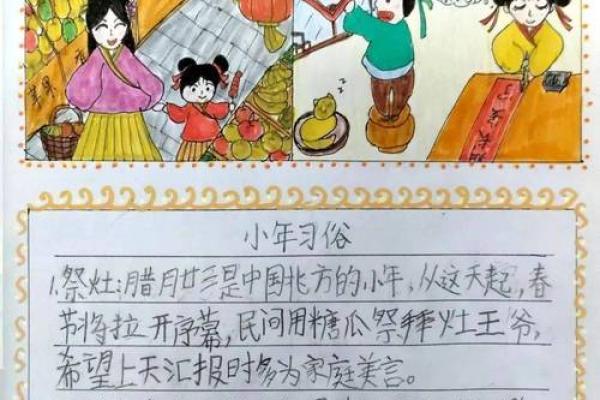 苹果
小年习俗
1.祭灶:腊月廿三是中国北方的小年,从这天起,春
节将拉开序幕,民间用糖瓜祭拜灶王爷,
希望上天汇报时多为家庭美言。